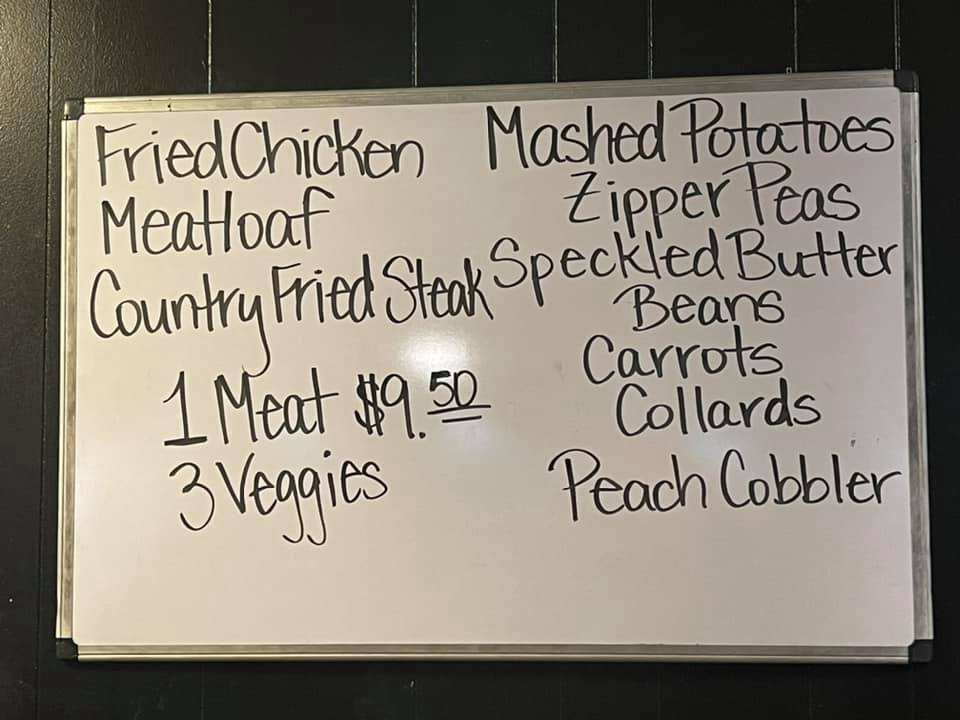 Fried Chicken
Meatloaf
Country Fried Steak
1 Meat $9.50
3 Veggies
Mashed Potatoes
Zipper Peas
Speckled Butter
Beans
Carrots
Collards
Peach Cobbler